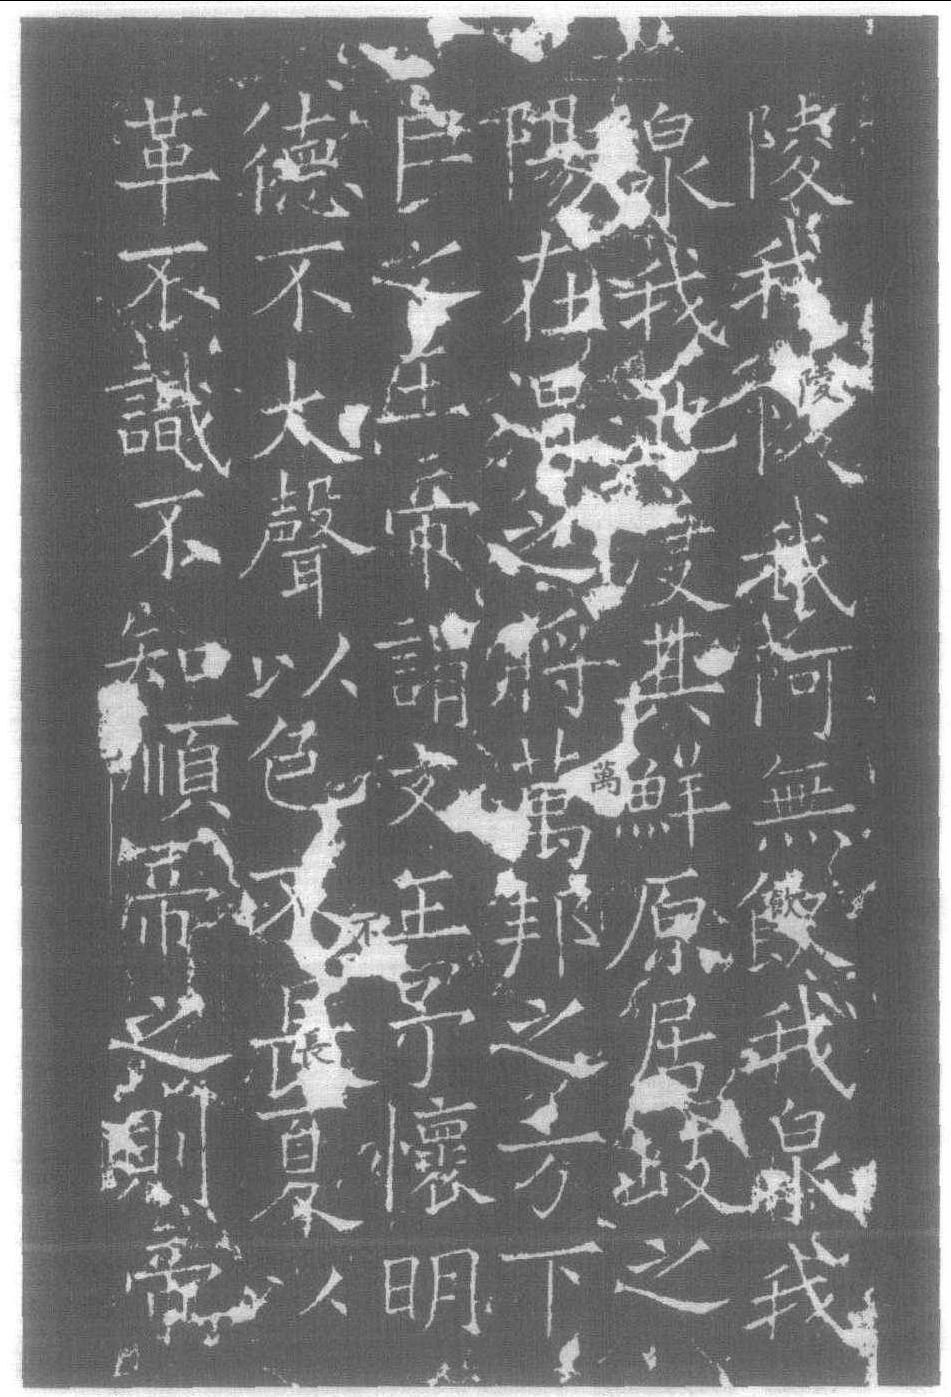 陵我陵我阿無飲我泉我
泉我池度其鮮原居歧之
陽在渭之將萬邦之方下
民之王帝謂文王予懷明
德不大聲以色不長夏以
革不識不知順帝之則帝
陵
飲
萬
不
長